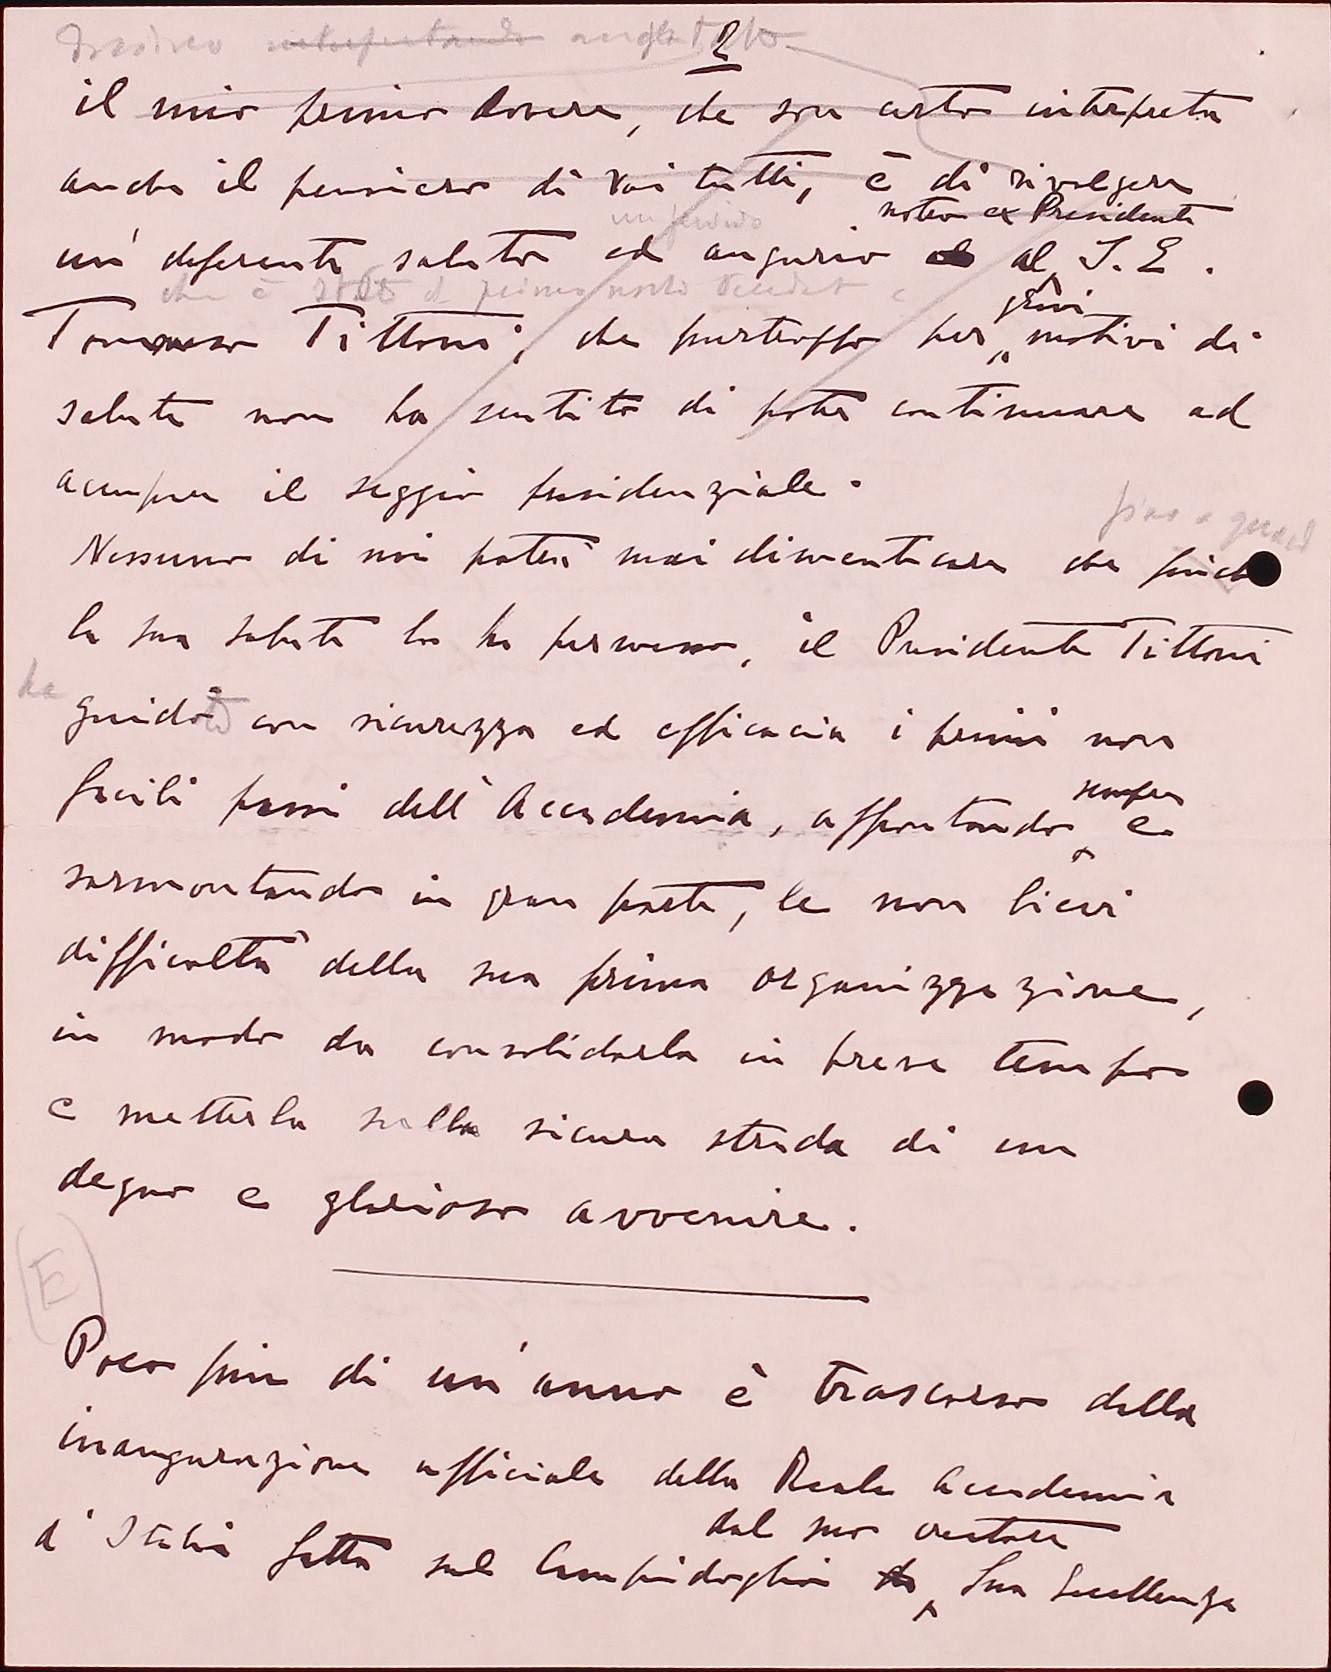 2
il mio primo dovere, che son certo interpreta
anche il pensiero di voi tutti, è di rivolgere
nostro ex Presidente
un fervido
un' deferente saluto ed augurio al S. E.
che è stato il primo nostro
gravi
Tommaso Tittoni, che purtroppo per motivi di
salute non ha sentito di poter continuare ad
occupare il seggio presidenziale.
fino a quando
Nessuno di noi potrà mai dimenticare che finchè
la sua salute lo ha permesso, il Presidente Tittoni
ha
guidò con sicurezza ed efficacia i primi non
sempre
facili passi dell'Accademia, affrontando e
sormontando in gran parte, le non lievi
difficoltà della sua prima organizzazione,
in modo da consolidarla in breve tempo
e metterla sulla sicura strada di un
degno e glorioso avvenire.
(E)
Poco più di un'anno è trascorso dalla
inaugurazione ufficiale della Reale Accademia
dal suo creatore
d'Italia fatta sul Campidoglio da Sua Eccellenza